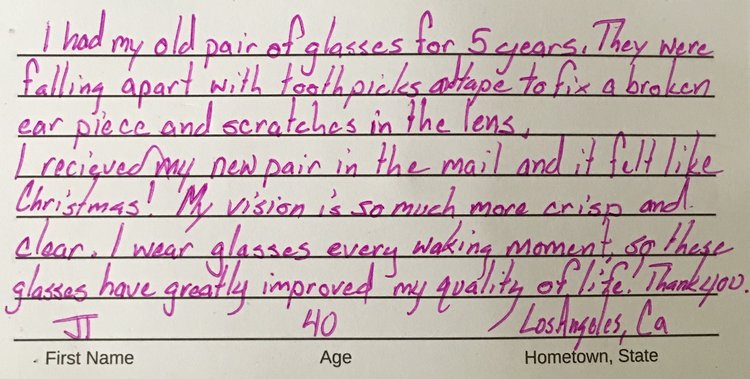 I had my old pair of glasses for 5 years. They were
falling apart with toothpicks and tape to fix a broken
ear piece and scratches in the lens.
I recieved my new pair in the mail and it felt like
Christmas! My vision is so much more crisp and
clear. I wear glasses every waking moment, so these
glasses have greatly improved my quality of life! Thank you.
40 Los Angeles, Ca
First Name Age Hometown, State